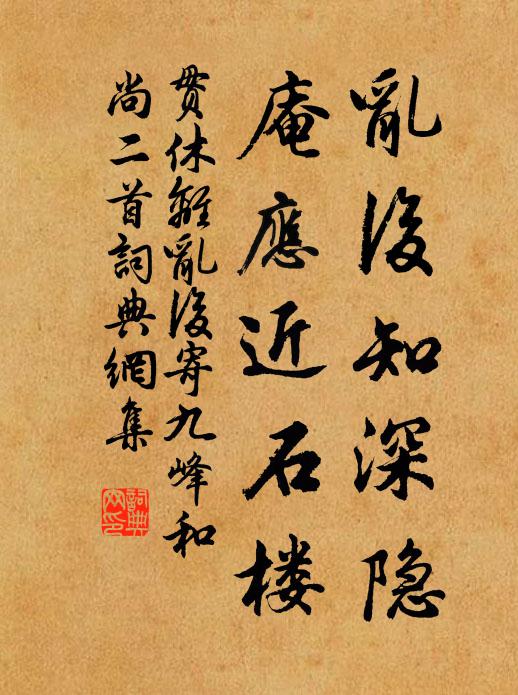 亂後知深隐
庵應近石楼
贯休離亂後寄九峰和
尚二首詞典網集
詞典
网印